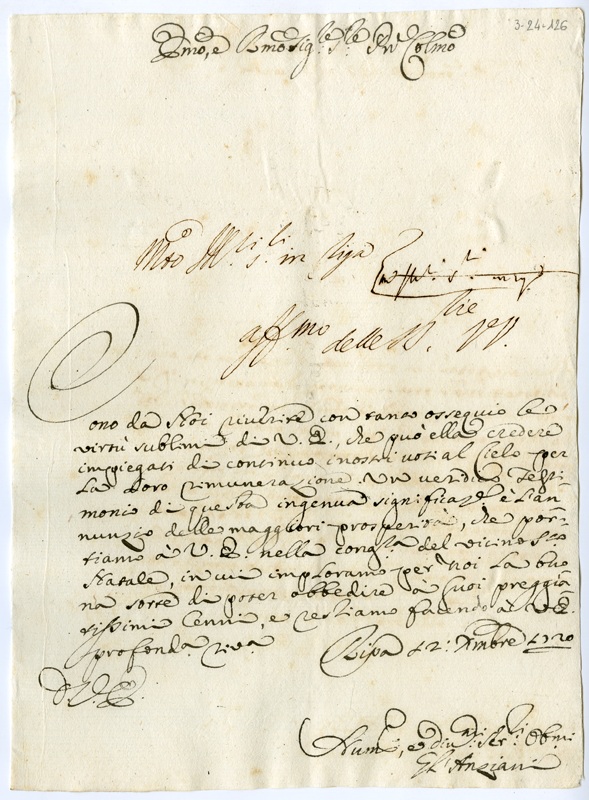 3-24-126
Emo, e Rmo Sig.re Sre Prñ Colmo
Mto Ill.ri S.ri in Ripa
aff.mo delle SS. VV. Illrie
Sono da Noi riverite con tanto ossequio le
virtù sublimi di V. E., che può ella credere
impiegati di continuo i nostri voti al Cielo per
la loro rimunerazione. Un veridico Testi-
monio di questa ingenua significaz.e è l'an-
nunzio delle maggiori prosperità, che por-
tiamo à V. E. nella cong.ra del vicino Sto
Natale, in cui imploramo per noi la buo
na sorte di poter obbedire à suoi preggia
tissimi Cenni, e restiamo facendo à V. E.
profonda riva
Ripa 12: Xmbre 1720
D V. E.
Hum.i, e div.mi Ser.ri Obmi
Gl'Anziani